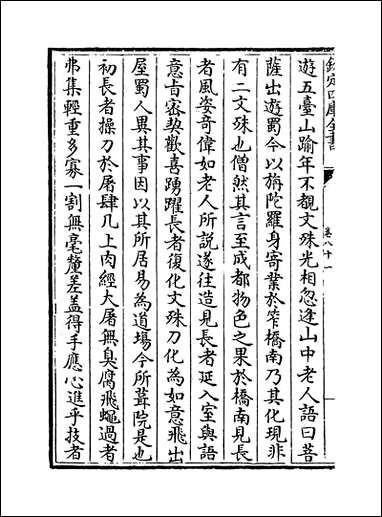 欽定四庫全書
卷八十一
遊五臺山踰年不覩文殊光相忽逢山中老人語曰菩
薩出遊蜀今以旃陀羅身寄業於窄橋南乃其化現非
有二文殊也僧然其言至成都物色之果於橋南見長
者風姿奇偉如老人所說遂往造見長者延入室與語
意㫖宻契歡喜踴躍長者復化文殊刀化為如意飛出
屋蜀人異其事因以其所居易為道場今所葺院是也
初長者操刀於屠肆几上肉經大屠無臭腐飛蠅過者
弗集輕重多寡一割無毫釐差盖得手應心進乎技者